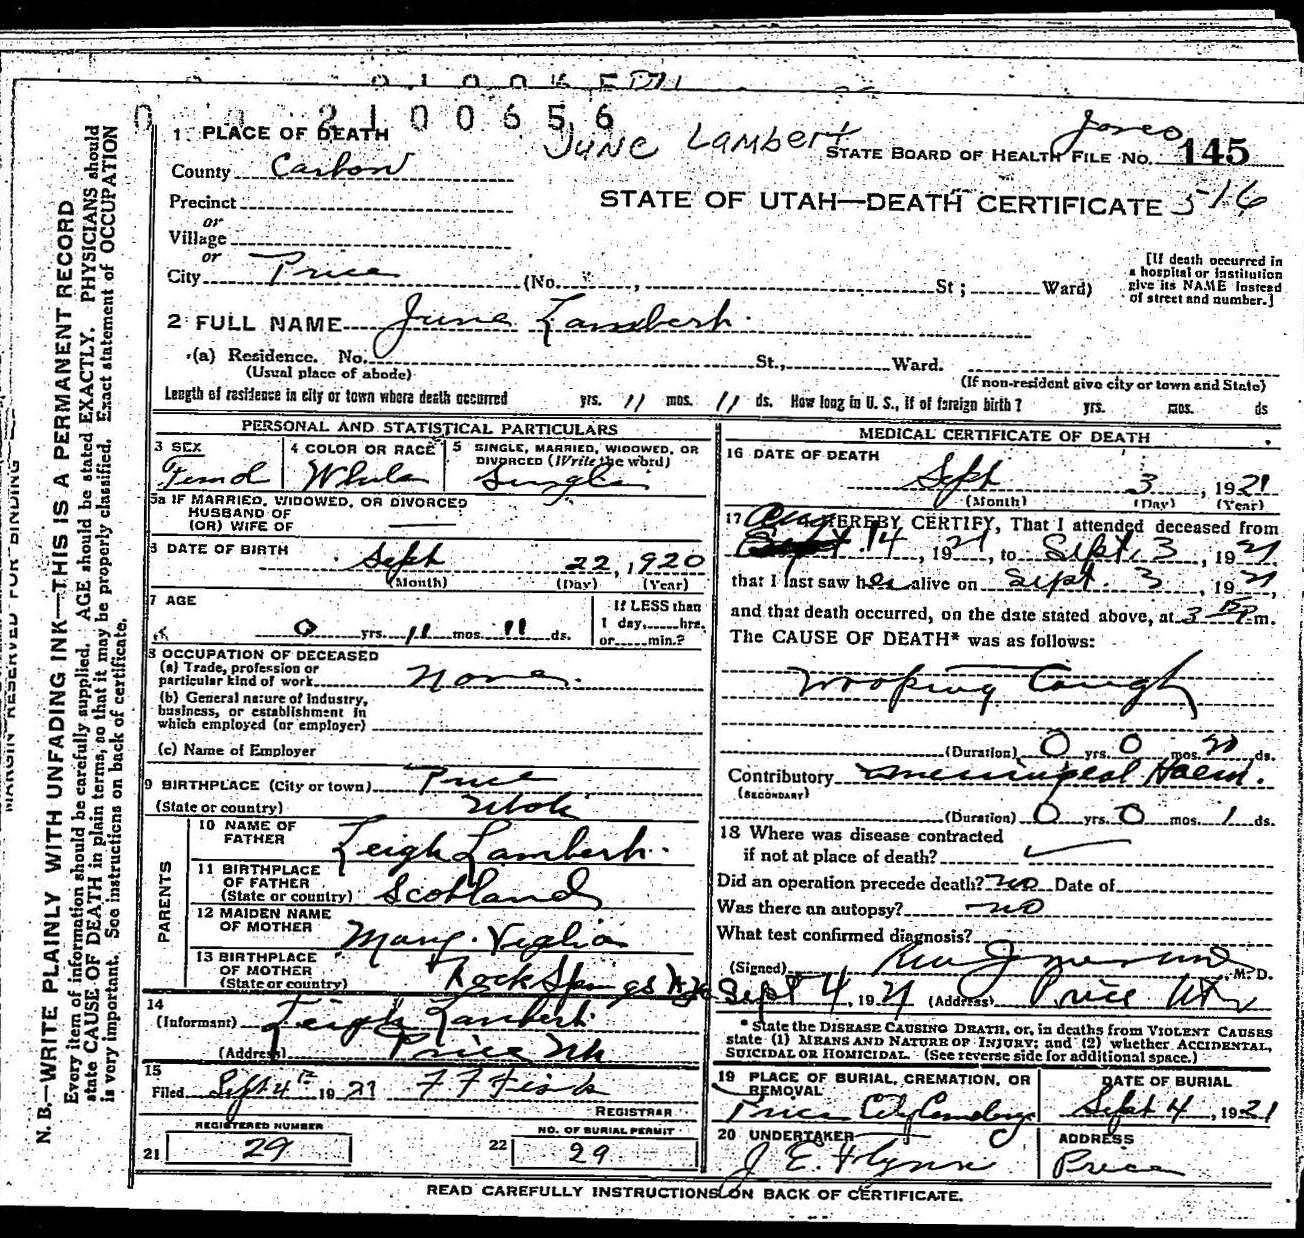 0 0 2 1 0 0 6 5 6
June Lambert
1 PLACE OF DEATH
STATE BOARD OF HEALTH FILE NO. 145
County Carbon
STATE OF UTAH—DEATH CERTIFICATE 516
Precinct
or
Village
or
City Price (No. , St ; Ward)
[If death occurred in
a hospital or institution
give its NAME instead
of street and number.]
2 FULL NAME June Lambert
(a) Residence. No. St., Ward.
(Usual place of abode) (If non-resident give city or town and State)
Length of residence in city or town where death occurred yrs. 11 mos. 11 ds. How long in U. S., if of foreign birth? yrs. mos. ds
PERSONAL AND STATISTICAL PARTICULARS
3 SEX
Femal
4 COLOR OR RACE
White
5 SINGLE, MARRIED, WIDOWED, OR
DIVORCED (Write the word)
Single
5a IF MARRIED, WIDOWED, OR DIVORCED
HUSBAND OF
(OR) WIFE OF
6 DATE OF BIRTH
Sept 22, 1920
(Month) (Day) (Year)
7 AGE
0 yrs. 11 mos. 11 ds.
If LESS than
1 day, hrs.
or min.?
8 OCCUPATION OF DECEASED
(a) Trade, profession or
particular kind of work None.
(b) General nature of industry,
business, or establishment in
which employed (or employer)
(c) Name of Employer
9 BIRTHPLACE (City or town) Price
(State or country) Utah
PARENTS
10 NAME OF
FATHER Leigh Lambert.
11 BIRTHPLACE
OF FATHER
(State or country) Scotland
12 MAIDEN NAME
OF MOTHER Mary Veglia
13 BIRTHPLACE
OF MOTHER
(State or country) Rock Springs Wyo
14
(Informant) Leigh Lambert
(Address) Price Utah
15
Filed Sept 4th 1921 F F Fisk
REGISTRAR
REGISTERED NUMBER
21 29
NO. OF BURIAL PERMIT
22 29
MEDICAL CERTIFICATE OF DEATH
16 DATE OF DEATH
Sept 3, 1921
(Month) (Day) (Year)
17 I HEREBY CERTIFY, That I attended deceased from
Aug 14, 1921, to Sept. 3, 1921,
that I last saw her alive on Sept. 3, 1921,
and that death occurred, on the date stated above, at 3 15 P.m.
The CAUSE OF DEATH* was as follows:
Wooping Cough
(Duration) 0 yrs. 0 mos. 20 ds.
Contributory Meningeal Haem.
(SECONDARY)
(Duration) 0 yrs. 0 mos. 1 ds.
18 Where was disease contracted
if not at place of death?
Did an operation precede death? no Date of
Was there an autopsy? no
What test confirmed diagnosis?
(Signed) M.D.
Sept 4, 1921 (Address) Price Utah
*State the DISEASE CAUSING DEATH, or, in deaths from VIOLENT CAUSES
state (1) MEANS AND NATURE OF INJURY; and (2) whether ACCIDENTAL,
SUICIDAL OR HOMICIDAL. (See reverse side for additional space.)
19 PLACE OF BURIAL, CREMATION, OR
REMOVAL
Price City Cemetery
DATE OF BURIAL
Sept 4, 1921
20 UNDERTAKER
J E Flynn
ADDRESS
Price
READ CAREFULLY INSTRUCTIONS ON BACK OF CERTIFICATE.
MARGIN RESERVED FOR BINDING
N. B.—WRITE PLAINLY WITH UNFADING INK—THIS IS A PERMANENT RECORD
Every item of information should be carefully supplied. AGE should be stated EXACTLY. PHYSICIANS should
state CAUSE OF DEATH in plain terms, so that it may be properly classified. Exact statement of OCCUPATION
is very important. See instructions on back of certificate.